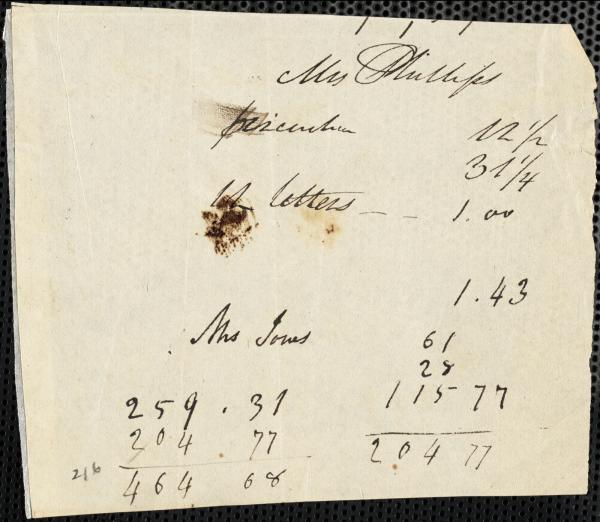 Mrs Phillips
12 1/2
31 1/4
12 letters - - 1.00
1.43
Mrs Jones 61
28
259.31 115 77
204 77 204 77
464 68
216